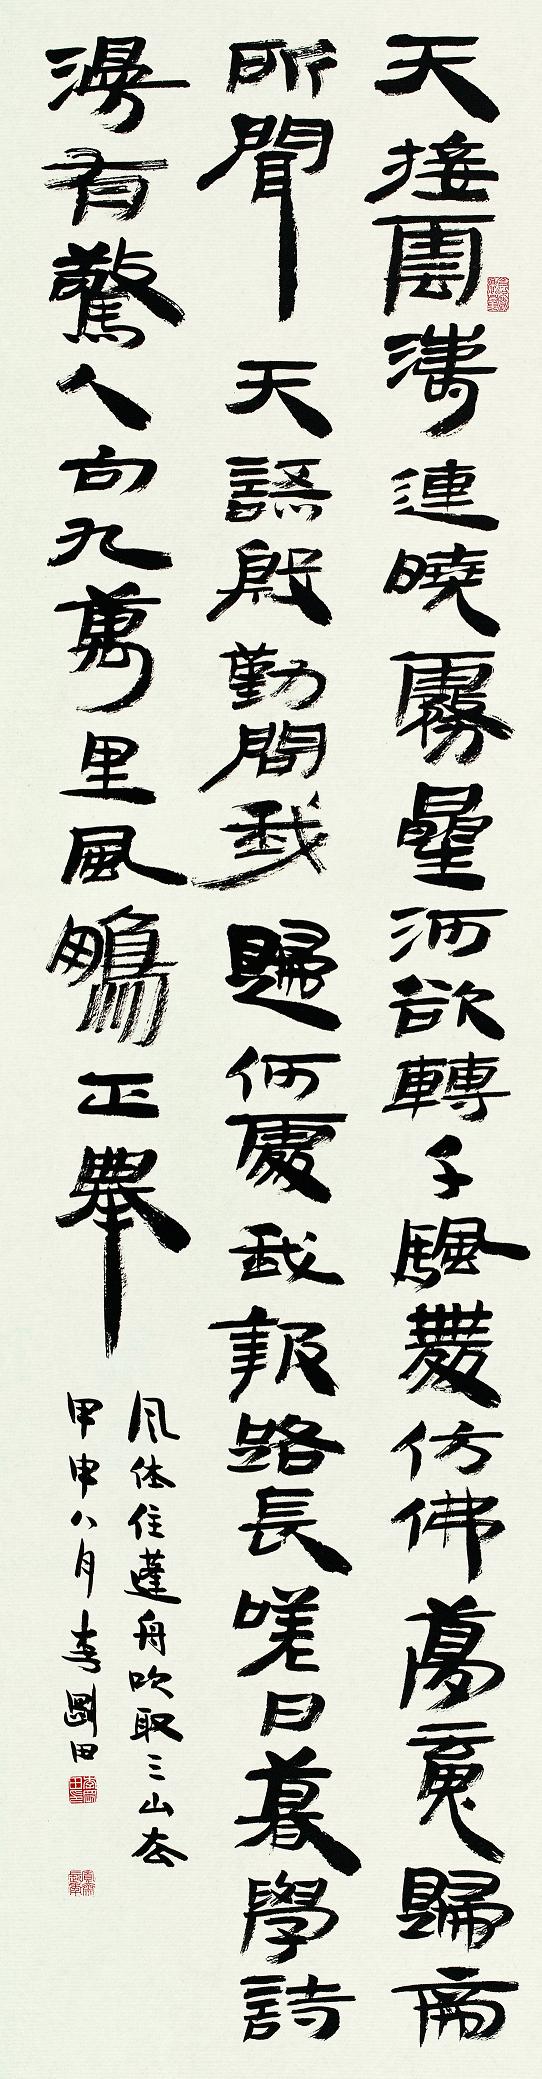 天接雲濤連曉霧曐河欲轉千颿舞仿佛夢魂歸帝
所聞天語殷勤問我歸何處我報路長嗟日暮學詩
漫有驚人句九萬里風鵬正舉
風休住蓬舟吹取三山去
甲申八月李剛田